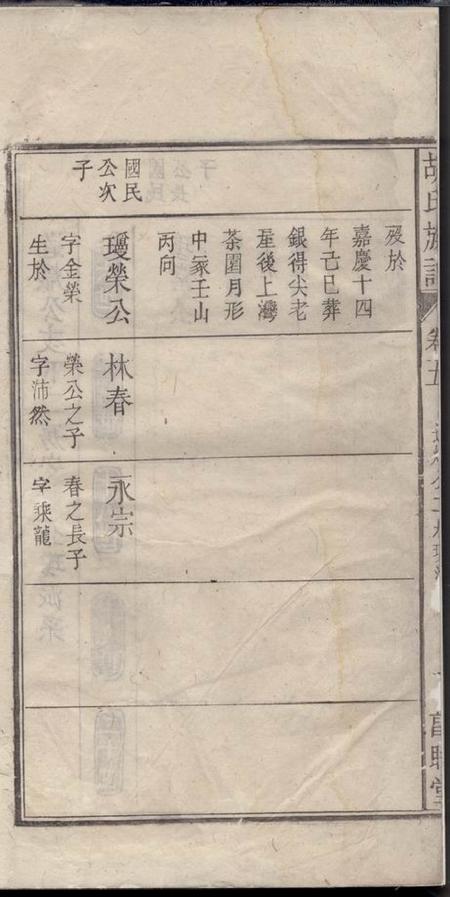 胡氏族譜
卷五
國民
公次
子
歿於
嘉慶十四
年己巳葬
銀得尖老
屋後上灣
茶園月形
中冢壬山
丙向
瓊榮公
字金榮
生於
林春
榮公之子
字沛然
永宗
春之長子
字乘龍